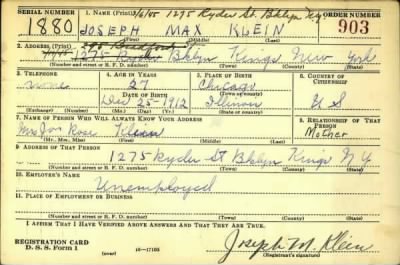 SERIAL NUMBER 1. NAME (Print) 3/6/45 1275 Ryder St. Bklyn NY ORDER NUMBER
1880 JOSEPH MAX KLEIN 903
2. ADDRESS (Print)
1275 Ryder Bklyn Kings New York
(Number and street or R. F. D. number) (Town) (County) (State)
3. TELEPHONE 4. AGE IN YEARS 5. PLACE OF BIRTH 6. COUNTRY OF CITIZENSHIP
none 27 Chicago
DATE OF BIRTH (Town or county)
Dec 25-1912 Illinois U S
(Mo.) (Day) (Yr.) (State or country)
7. NAME OF PERSON WHO WILL ALWAYS KNOW YOUR ADDRESS 8. RELATIONSHIP OF THAT PERSON
Mrs Rose Klein Mother
(Mr., Mrs., Miss)
9. ADDRESS OF THAT PERSON
1275 Ryder St Bklyn Kings N Y
(Number and street or R. F. D. number) (Town) (County) (State)
10. EMPLOYER'S NAME
Unemployed
11. PLACE OF EMPLOYMENT OR BUSINESS
(Number and street or R. F. D. number) (Town) (County) (State)
I AFFIRM THAT I HAVE VERIFIED ABOVE ANSWERS AND THAT THEY ARE TRUE.
REGISTRATION CARD
D. S. S. Form 1 (over) 16-17105 Joseph M Klein
(Registrant's signature)